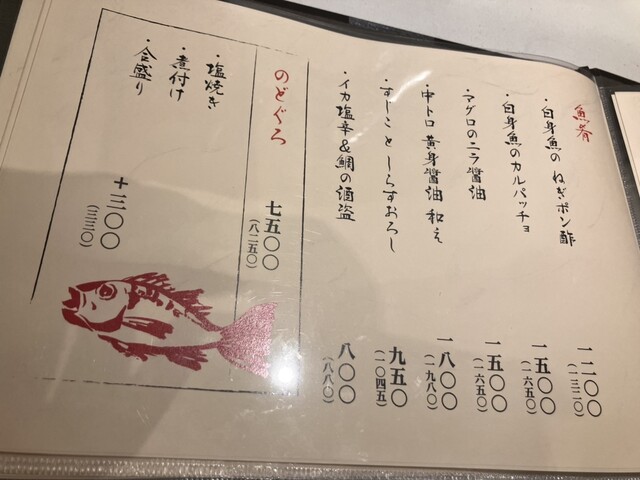 魚肴
・白身魚の ねぎポン酢 一二〇〇 (一三二〇)
・白身魚のカルパッチョ 一五〇〇 (一六五〇)
・マグロのニラ醤油 一五〇〇 (一六五〇)
・中トロ 黄身醤油 和え 一八〇〇 (一九八〇)
・すじこ としらすおろし 九五〇 (一〇四五)
・イカ塩辛&鯛の酒盗 八〇〇 (八八〇)
のどぐろ 七五〇〇 (八二五〇)
・塩焼き
・煮付け
・合盛り +三〇〇 (三三〇)